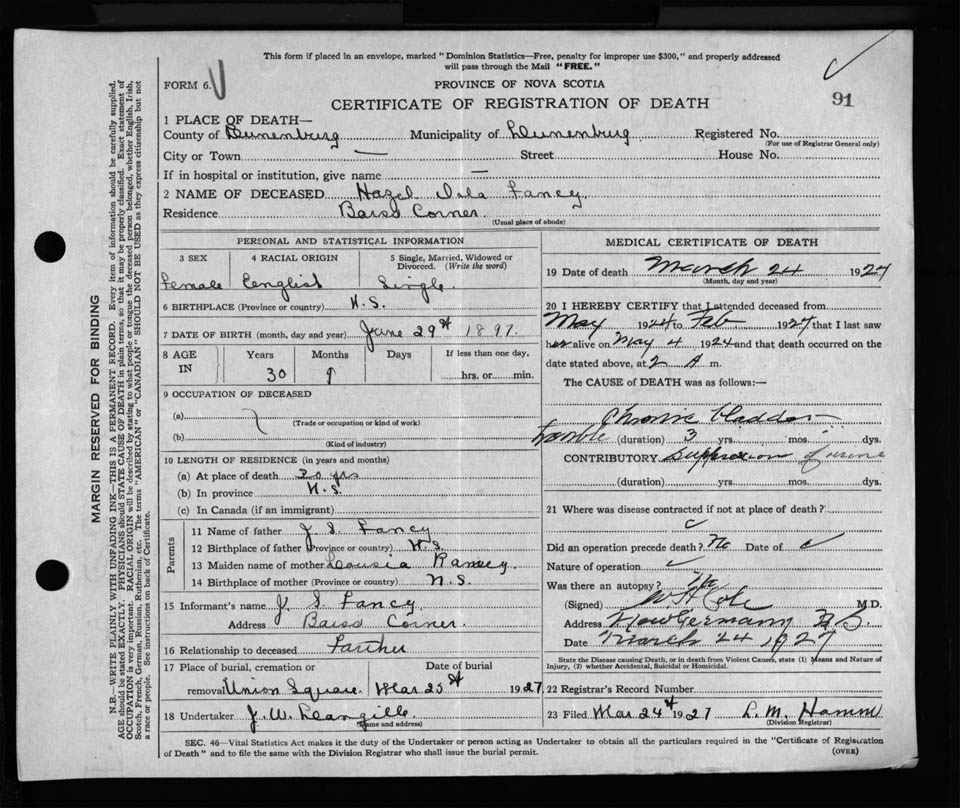 This form if placed in an envelope, marked "Dominion Statistics—Free, penalty for improper use $300," and properly addressed
will pass through the Mail "FREE."
FORM 6.
PROVINCE OF NOVA SCOTIA
CERTIFICATE OF REGISTRATION OF DEATH
91
1 PLACE OF DEATH—
County of Lunenburg Municipality of Lunenburg Registered No.
(For use of Registrar General only)
City or Town — Street House No.
If in hospital or institution, give name —
2 NAME OF DECEASED Hazel Lancy
Residence Corner
(Usual place of abode)
PERSONAL AND STATISTICAL INFORMATION
3 SEX 4 RACIAL ORIGIN 5 Single, Married, Widowed or
Divorced. (Write the word)
Female English Single
6 BIRTHPLACE (Province or country) N.S.
7 DATE OF BIRTH (month, day and year) June 29st 1897.
8 AGE IN Years Months Days If less than one day,
30 9 hrs. or min.
9 OCCUPATION OF DECEASED
(a)
(Trade or occupation or kind of work)
(b)
(Kind of industry)
10 LENGTH OF RESIDENCE (in years and months)
(a) At place of death 30 yrs
(b) In province N.S.
(c) In Canada (if an immigrant)
Parents
11 Name of father J. S. Lancy
12 Birthplace of father (Province or country) N.S.
13 Maiden name of mother Ramey
14 Birthplace of mother (Province or country) N.S.
15 Informant's name J. S. Lancy
Address Corner.
16 Relationship to deceased Farther
17 Place of burial, cremation or Date of burial
removal Union Square Mar 25st 1927
18 Undertaker J. W.
(Name and address)
MEDICAL CERTIFICATE OF DEATH
19 Date of death March 24 1927
(Month, day and year)
20 I HEREBY CERTIFY that I attended deceased from
May 1924 to Feb 1927 that I last saw
her alive on May 4 1924 and that death occurred on the
date stated above, at 2 A m.
The CAUSE of DEATH was as follows:—
Chronic bladder
trouble (duration) 3 yrs. mos. dys.
CONTRIBUTORY Suppression of urine
(duration) yrs. mos. dys.
21 Where was disease contracted if not at place of death?
Did an operation precede death? No Date of
Nature of operation
Was there an autopsy? No
(Signed) W. H. Cole M.D.
Address New Germany N S
Date March 24 1927
State the Disease causing Death, or in death from Violent Causes, state (1) Means and Nature of
Injury, (2) whether Accidental, Suicidal or Homicidal.
22 Registrar's Record Number
23 Filed Mar 24st 1927 L. M. Hamm
(Division Registrar)
SEC. 46—Vital Statistics Act makes it the duty of the Undertaker or person acting as Undertaker to obtain all the particulars required in the "Certificate of Registration
of Death" and to file the same with the Division Registrar who shall issue the burial permit. (OVER)
MARGIN RESERVED FOR BINDING
N.B.—WRITE PLAINLY WITH UNFADING INK—THIS IS A PERMANENT RECORD. Every item of information should be carefully supplied.
AGE should be stated EXACTLY. PHYSICIANS should STATE CAUSE OF DEATH in plain terms, so that it may be properly classified. Exact statement of
OCCUPATION is very important. RACIAL ORIGIN will be described by stating to what people or tongue the deceased person belonged, whether English, Irish,
Scotch, French, German, Russian, Ruthenian, etc. The terms "AMERICAN" or "CANADIAN" SHOULD NOT BE USED as they express citizenship but not
a race or people. See instructions on back of Certificate.